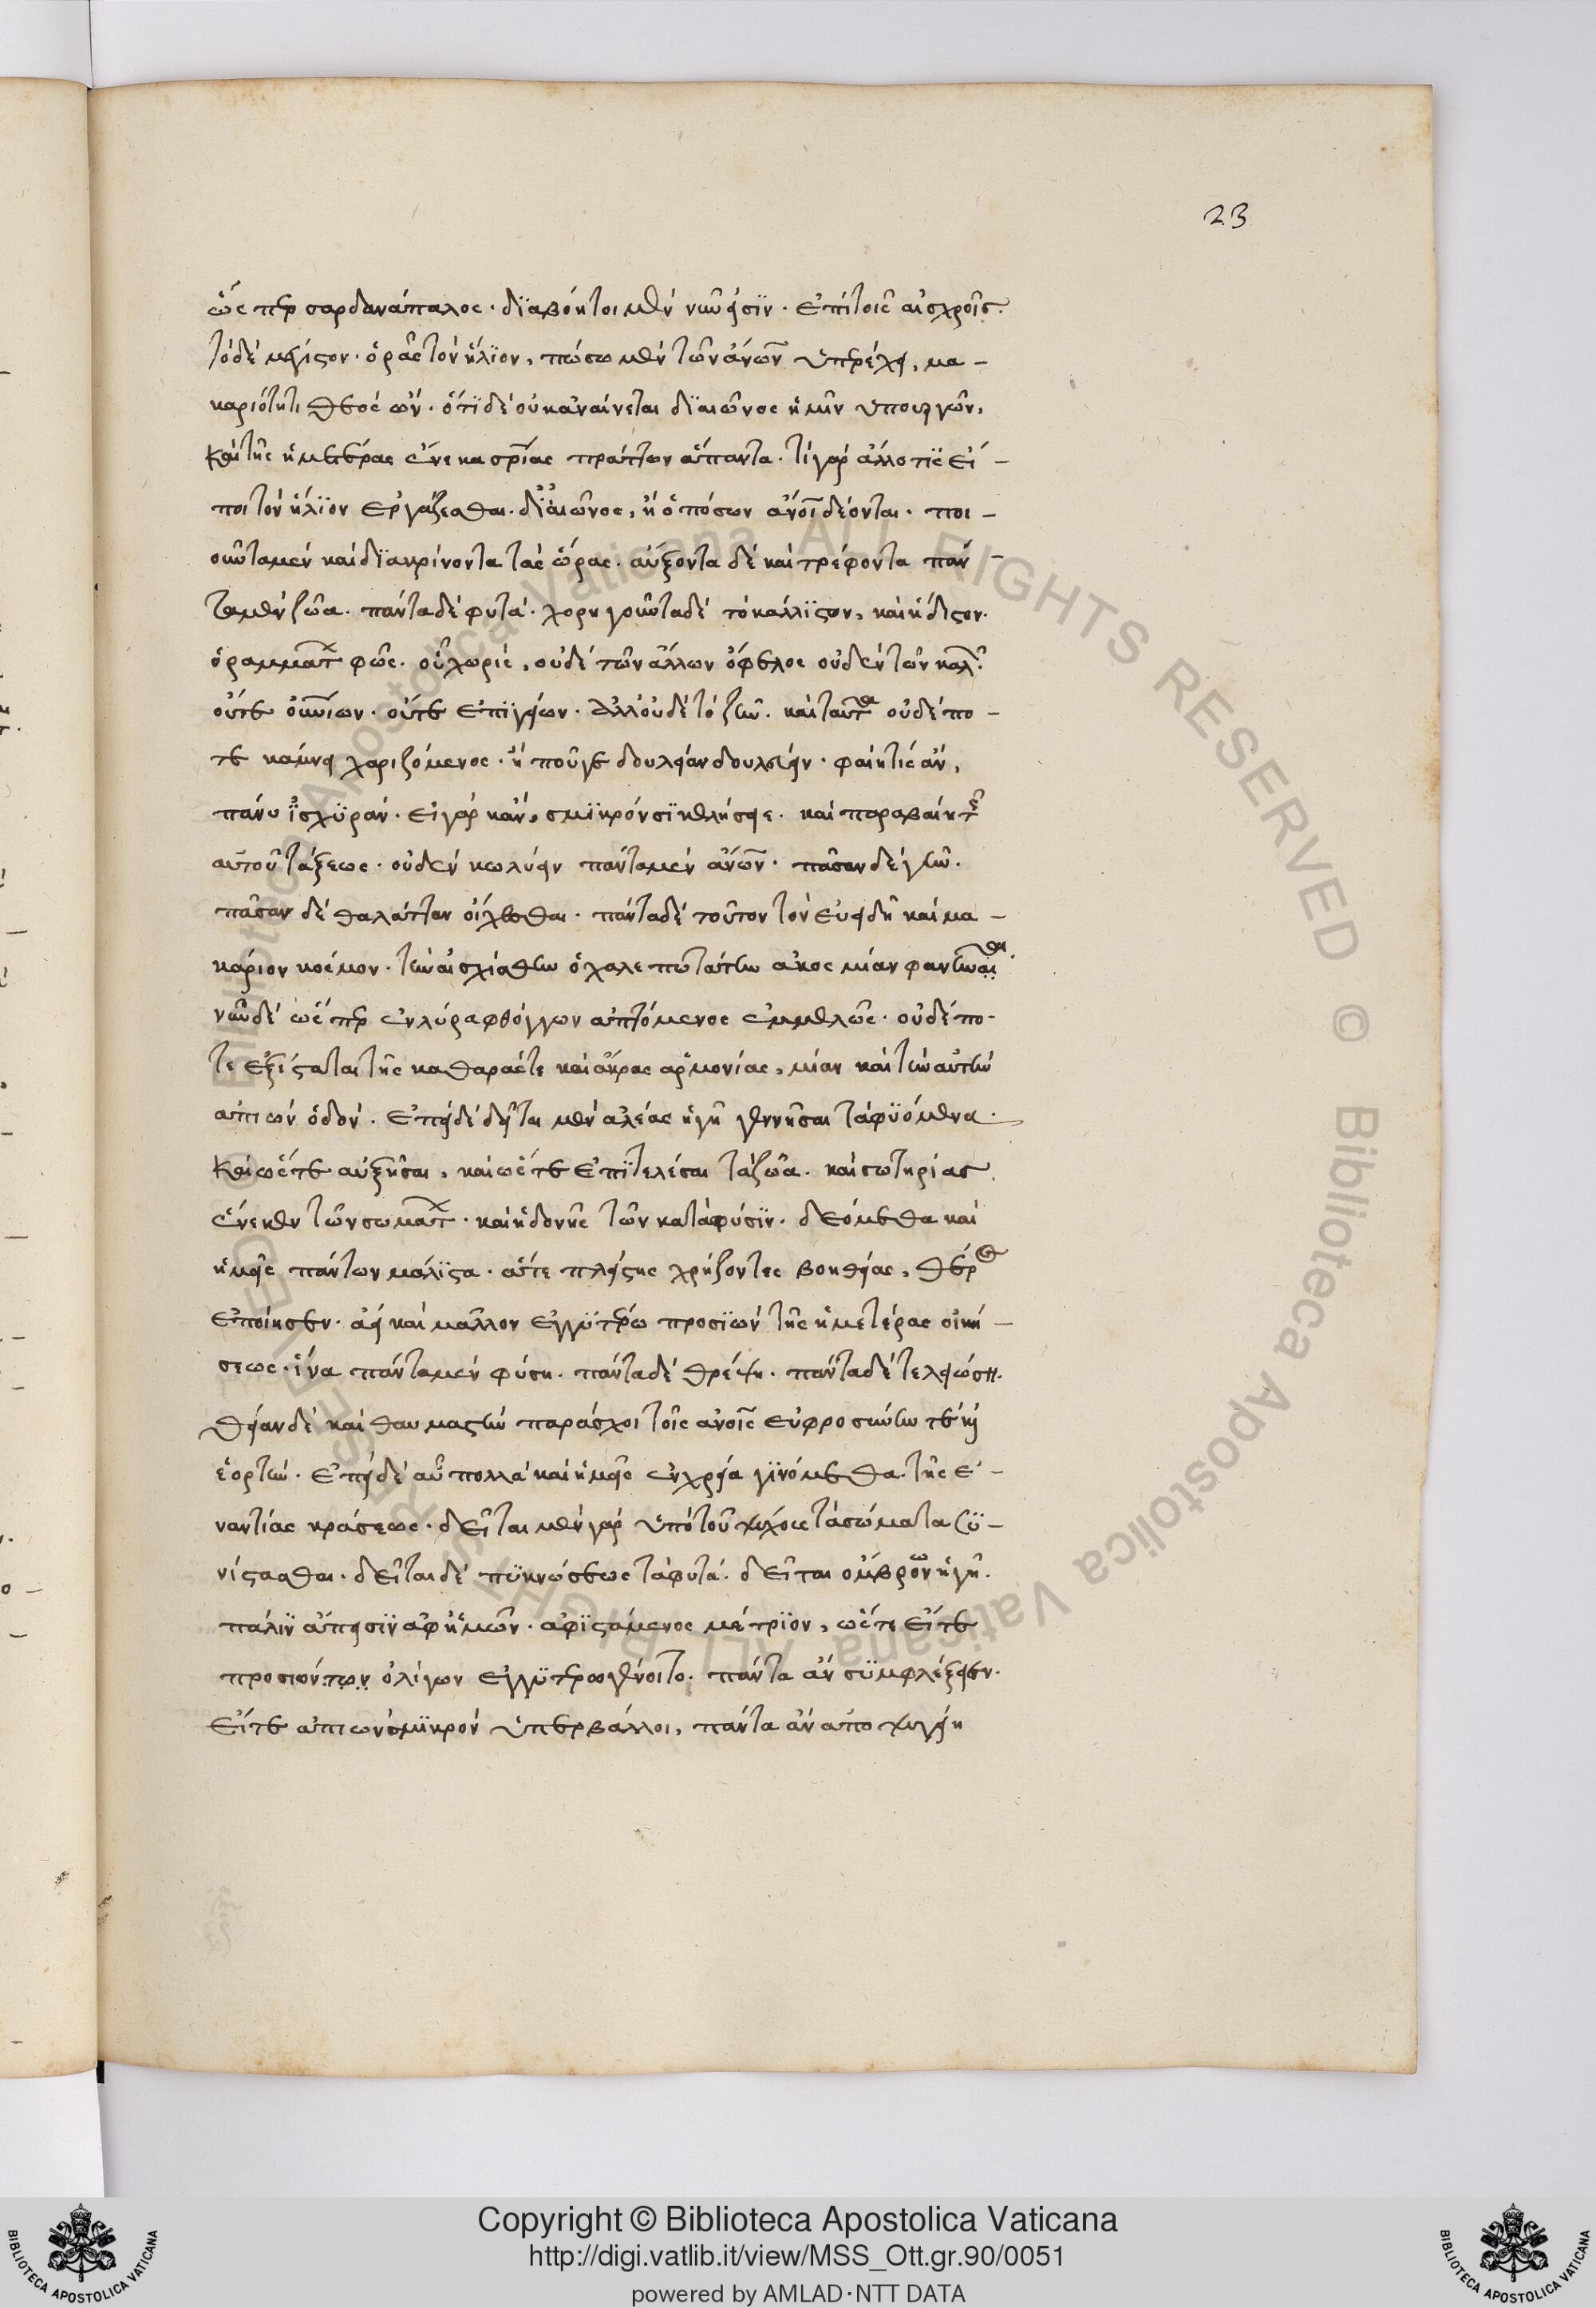 23
ὥς περ σαρδανάπαλος· διαβόητοι μὲν νῦν εἰσϊν· ἐπὶ τοῖς αἰσχροῖς·
τὸ δὲ μέγιστον· ὁρᾷς τὸν ἥλϊον, πόσω μὲν τῶν ἀνων ὑπερέχει, μα–
καριότητι θεὸς ὤν· ὅτϊ δὲ οὐκ ἀναίνεται δϊ αἰῶνος ἡμῖν ὑπουργῶν,
καὶ τῆς ἡμετέρας ἕνεκα σρίας πράττων ἅπαντα· τί γὰρ ἄλλο τϊς εἴ–
ποι τὸν ἥλϊον ἐργάζεσθαι· δϊ αἰῶνος, ἢ ὁπόσων ἄνοι δέονται· ποι–
οῦντα μὲν καὶ δϊακρίνοντα τὰς ὥρας· αὔξοντα δὲ καὶ τρέφοντα πάν–
τα μὲν ζῶα· πάντα δὲ φυτά· χορηγοῦντα δὲ τὸ κάλλϊστον, καὶ ἥδιστον·
ὁραμμάτ φῶς· οὗ χωρὶς, οὐδὲ τῶν ἄλλων ὄφελος οὐδὲν τῶν καλ·
οὔτε οὐνίων· οὔτε ἐπϊγείων· ἀλλ' οὐδὲ τὸ ζῆν· καὶ ταῦτα οὐδέπο–
τε κάμνει χαριζόμενος· ἦ πού γε δουλείαν δουλεύειν· φαίη τὶς ἂν,
πάνυ ἰσχϋράν· εἰ γὰρ κἂν, σμϊκρόν σϊ κθλήσειε· καὶ παραβαίη τ
αὑτοῦ τάξεως· οὐδὲν κωλύειν πάντα μὲν ἀνων· πᾶσαν δὲ γῆν·
πᾶσαν δὲ θάλατταν οἴχεσθαι· πάντα δὲ τοῦτον τὸν εὐειδῆ καὶ μα–
κάριον κόσμον· τὴν αἰσχίστην ὁ χαλεπωτάτην ἄκοσμίαν φαντῶσαι·
νῦν δὲ ὥς περ ἐν λύρα φθόγγων ἁπτόμενος ἐμμελῶς· οὐδέπο–
τε ἐξίσταται τῆς καθαρᾶς τε καὶ ἄκρας ἁρμονίας, μίαν καὶ τὴν αὐτὴν
ἀπιὼν ὁδόν· ἐπεὶ δὲ δεῖται μὲν ἀλέας ἡ γῆ γεννῆσαι τὰ φϋόμενα·
καὶ ὥς τε αὐξῆσαι, καὶ ὥς τε ἐπϊτελέσαι τὰ ζῶα· καὶ σωτηρίας
ἕνεκεν τῶν σωμάτ· καὶ ἡδονῆς τῶν κατὰ φύσϊν· δεόμεθα καὶ
ἡμεῖς πάντων μάλϊστα· ἅτε πλείστης χρῄζοντες βοηθείας, θέρος
ἐποίησεν· ἀεὶ καὶ μᾶλλον ἐγγϋτέρω προσϊὼν τῆς ἡμετέρας οἰκή–
σεως· ἵνα πάντα μὲν φύση· πάντα δὲ θρέψη· πάντα δὲ τελειώση·
θείαν δὲ καὶ θαυμαστὴν παράσχοι τοῖς ἀνοις εὐφροσύνην τὲ καὶ
ἑορτήν· ἐπεὶ δὲ αὖ πολλὰ καὶ ἡμεῖς ἐν χρεία γϊνόμεθα· τῆς ἐ–
ναντίας κράσεως· δεῖται μὲν γὰρ ὑπὸ τοῦ ψύχους τὰ σώματα ξϋ–
νίστασθαι· δεῖται δὲ πϋκνώσεως τὰ φυτά· δεῖται ὄμβρων ἡ γῆ·
πάλϊν ἄπεισϊν ἀφ' ἡμῶν· ἀφϊστάμενος μέτρϊον, ὥς τε εἴτε
προσιόντων ὀλίγων ἐγγϋτέρω γένοιτο· πάντα ἂν σϋμφλέξειεν·
εἴτε ἀπιὼν σμϊκρὸν ὑπερβάλλοι, πάντα ἂν ἀποψυγείη
Copyright © Biblioteca Apostolica Vaticana
http://digi.vatlib.it/view/MSS_Ott.gr.90/0051
powered by AMLAD·NTT DATA